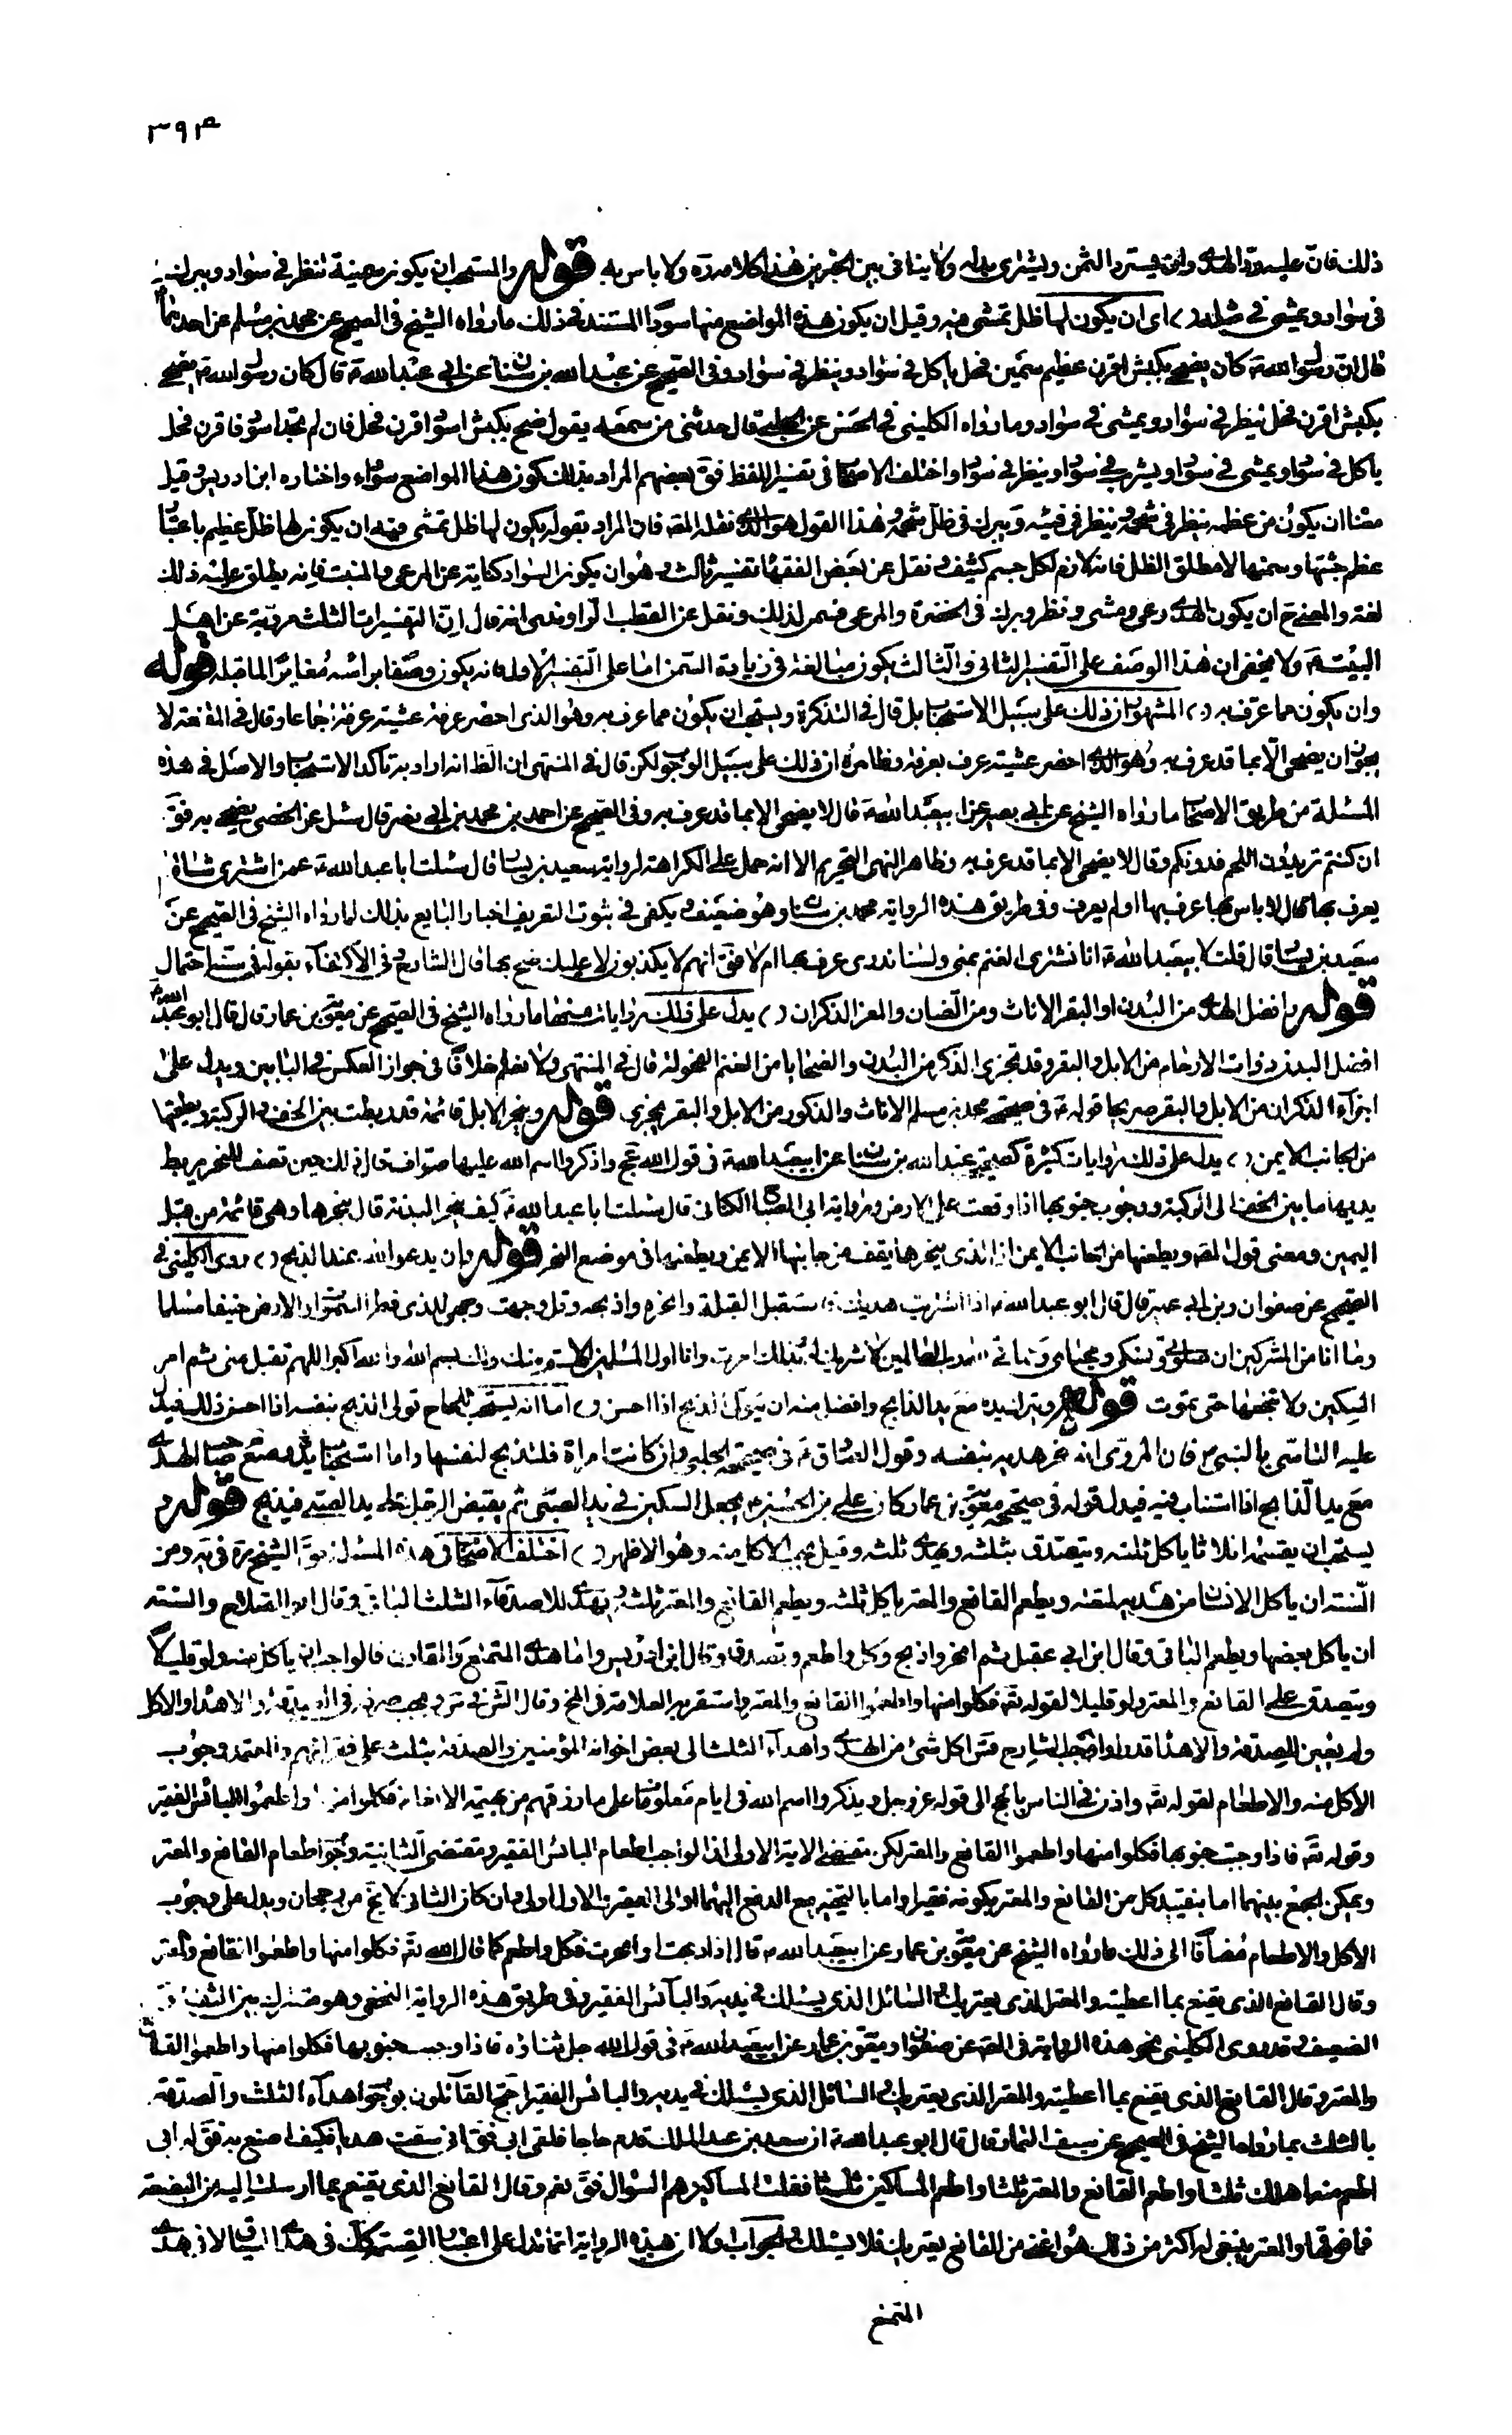 ٣٩٤
ذلك فان عليه رد الهدى وان يسترد الثمن ويشترى بدله ولا ينافى بين الخبرين هذا كلامه ره ولا باس به قوله والمستحب ان يكون سمينة تنظر فى سواد وتبرك
فى سواد وتمشى فى مثله اى ان يكون لها ظل تمشى فيه وقيل ان يكون هذه المواضع منها سودا المستند فى ذلك ما رواه الشيخ فى الصحيح عن محمد بن مسلم عن احدهما
قال ان رسول الله كان يضحى بكبش اقرن عظيم سمين فحل ياكل فى سواد وينظر فى سواد وفى الصحيح عن عبد الله بن سنان عن ابى عبد الله قال كان رسول الله يضحى
بكبش اقرن فحل ينظر فى سواد ويمشى فى سواد وما رواه الكلينى فى الحسن عن الحلبى قال حدثنى من سمعه يقول ضح بكبش اسود اقرن فحل فان لم تجد اسود فاقرن فحل
ياكل فى سواد ويمشى فى سواد ويشرب فى سواد وينظر فى سواد واختلف الاصحاب فى تفسير اللفظ فق بعضهم المراد بذلك كون هذه المواضع سوداء واختاره ابن ادريس وقيل
معناه ان يكون من عظمه ينظر فى شحمه وينظر فى فيئه ويبرك فى ظل شحمه وهذا القول هو الذى نقله المص فان المراد بقوله يكون لها ظل تمشى فيه ان يكون لها ظل عظيم باعتبار
عظم جثتها وسمنها لا مطلق الظل فانه لازم لكل جسم كثيف ونقل عن بعض الفقهاء تفسير ثالث وهو ان يكون السواد كناية عن المرعى والمنبت فانه يطلق عليه ذلك
لغة والمعنى ح ان يكون الهدى رعى ومشى ونظر وبرك فى الخضرة والمرعى فسمن لذلك ونقل عن القطب الراوندى انه قال ان التفسيرات الثلث مروية عن اهل
البيت ولا يخفى ان هذا الوصف على التفسير الثانى والثالث يكون مبالغة فى زيادة السمن اما على التفسير الاول فانه يكون وصفا براسه مغايرا لما قبله قوله
وان يكون مما عرف به المشهور ان ذلك على سبيل الاستحباب بل قال فى التذكرة ويستحب ان يكون مما عرف به وهو الذى احضر عرفة عشية عرفة اجماعا وقال فى المقنعة لا
يجوز ان يضحى الا بما قد عرف به وهو الذى احضر عشية عرفة بعرفة وظاهره ان ذلك على سبيل الوجوب لكن قال فى المنتهى ان الظ انه اراد به تاكد الاستحباب والاصل فى هذه
المسئلة من طريق الاصحاب ما رواه الشيخ عن ابى بصير عن ابيعبد الله قال لا يضحى الا بما قد عرف به وفى الصحيح عن احمد بن محمد بن ابى نصر قال سئل عن الخصى يضحى به فق
ان كنتم تريدون اللحم فدونكم وقال لا يضحى الا بما قد عرف به وظاهر النهى التحريم الا انه حمل على الكراهة لرواية سعيد بن يسار قال سئلت ابا عبد الله عمن اشترى شاة
يعرف بها قال لا باس بها عرف بها او لم يعرف وفى طريق هذه الرواية محمد بن سنان وهو ضعيف ويكفى فى ثبوت التعريف اخبار البايع بذلك لما رواه الشيخ فى الصحيح عن
سعيد بن يسار قال قلت لابيعبد الله انا نشترى الغنم بمنى ولسنا ندرى عرف بها ام لا فق انهم لا يكذبون لا عليك ضح بها قال الشارح وفى الاكتفاء بقوله فى احتمال
قوله وافضل الهدى من البدن او البقر الاناث ومن الضان والمعز الذكران يدل على ذلك روايات منها ما رواه الشيخ فى الصحيح عن معوية بن عمار قال قال ابو عبد الله
افضل البدن ذوات الارحام من الابل والبقر وقد تجزى الذكر من البدن والضحايا من الغنم الفحولة قال فى المنتهى ولا نعلم خلافا فى جواز العكس فى البابين ويدل على
اجزاء الذكران من الابل والبقر صريحا قوله فى صحيحة محمد بن مسلم الاناث والذكور من الابل والبقر يجزى قوله وينحر الابل قائمة قد ربطت بين الخف والركبة ويطعنها
من الجانب الايمن يدل على ذلك روايات كثيرة كصحيحة عبد الله بن سنان عن ابيعبد الله فى قول الله عج واذكروا اسم الله عليها صواف قال ذلك حين تصف للنحر يربط
يديها ما بين الخف الى الركبة ووجوب جنوبها اذا وقعت على الارض ورواية ابى الصباح الكنانى قال سئلت ابا عبد الله كيف ينحر البدنة قال ينحرها وهى قائمة من قبل
اليمين ومعنى قول المص ويطعنها من الجانب الايمن ان الذى ينحرها يقف من جانبها الايمن ويطعنها فى موضع النحر قوله وان يدعو الله عند الذبح روى الكلينى فى
الصحيح عن صفوان وبن ابى عمير قال قال ابو عبد الله اذا اشتريت هديك فاستقبل القبلة وانحره او اذبحه وقل وجهت وجهى للذى فطر السموات والارض حنيفا مسلما
وما انا من المشركين ان صلوتى ونسكى ومحياى ومماتى لله رب العالمين لا شريك له وبذلك امرت وانا اول المسلمين اللهم منك ولك بسم الله والله اكبر اللهم تقبل منى ثم امر
السكين ولا تنخعها حتى تموت قوله ويترك يده مع يد الذابح وافضل منه ان يتولى الذبح اذا احسن اما انه يستحب للحاج تولى الذبح بنفسه اذا احسن ذلك فيدل
عليه التاسى بالنبى فان المروى انه نحر هديه بنفسه وقول الصادق فى صحيحة الحلبى وان كانت امراة فلتذبح لنفسها واما استحباب وضع صاحب الهدى
مع يد الذابح اذا استناب فيه فيدل قوله فى صحيحة معوية بن عمار كان على بن الحسين يجعل السكين فى يد الصبى ثم يقبض الرجل على يد الصبى فيذبح قوله و
يستحب ان يقسمه اثلاثا ياكل ثلثه ويتصدق بثلثه ويهدى ثلثه وقيل يجب الاكل منه وهو الاظهر اختلف الاصحاب فى هذه المسئلة الشيخ ره فى ية ومن
السنة ان ياكل الانسان من هديه لمتعته ويطعم القانع والمعتر ياكل ثلثه ويطعم القانع والمعتر ثلثه ويهدى للاصدقاء الثلث الباقى وقال ابو الصلاح والسنة
ان ياكل بعضها ويطعم الباقى وقال ابن ابى عقيل ثم انحر واذبح وكل واطعم وتصدق وقال ابن ادريس واما هدى المتمتع والقارن فالواجب ان ياكل منه ولو قليلا
ويتصدق على القانع والمعتر ولو قليلا لقوله تع فكلوا منها واطعموا القانع والمعتر واستقر به العلامة فى المخ وقال الشهيد فى يجب صرفه فى الصدقة والاهداء والاكل
ولم يعين للصدقة والاهداء قدرا واوجب الشارح فق اكل شئ من الهدى واهداء الثلث الى بعض اخوانه المؤمنين والصدقة بثلث على فقرائهم والمعتمد وجوب
الاكل منه والاطعام لقوله تع واذن فى الناس بالحج الى قوله عز وجل ويذكروا اسم الله فى ايام معلومات على ما رزقهم من بهيمة الانعام فكلوا منها واطعموا البائس الفقير
وقوله تع فاذا وجبت جنوبها فكلوا منها واطعموا القانع والمعتر لكن مقتضى الاية الاولى ان الواجب اطعام البائس الفقير ومقتضى الثانية وجوب اطعام القانع والمعتر
ويمكن الجمع بينهما اما بتقييد كل من القانع والمعتر بكونه فقيرا واما بالتخيير بين الدفع اليهما او الى الفقير والاول اولى وان كان الثانى لا يخ من رجحان ويدل على وجوب
الاكل والاطعام مضافا الى ذلك ما رواه الشيخ عن معوية بن عمار عن ابيعبد الله قال اذا ذبحت او نحرت فكل واطعم كما قال الله تع فكلوا منها واطعموا القانع والمعتر
وقال القانع الذى يقنع بما اعطيته والمعتر الذى يعتريك والسائل الذى يسئلك فى يديه والبائس الفقير وفى طريق هذه الرواية النخعى وهو مشترك بين الثقة و
الضعيف وقد روى الكلينى نحو هذه الرواية فى الصحيح عن صفوان ومعوية بن عمار عن ابيعبد الله فى قول الله جل ثناؤه فاذا وجبت جنوبها فكلوا منها واطعموا القانع
والمعتر وقال القانع الذى يقنع بما اعطيته والمعتر الذى يعتريك والسائل الذى يسئلك فى يديه والبائس الفقير احتج القائلون بوجوب اهداء الثلث والصدقة
بالثلث بما رواه الشيخ فى الصحيح عن سيف التمار قال قال ابو عبد الله ان سعد بن عبد الملك قدم حاجا فلقى ابى فق انى سقت هديا فكيف اصنع به فق له ابى
اطعم منه اهلك ثلثا واطعم القانع والمعتر ثلثا واطعم المساكين ثلثا فقلت المساكين هم السؤال فق نعم وقال القانع الذى يقنع بما ارسلت اليه من البضعة
فما فوقها والمعتر ينبغى له اكثر من ذلك هو اغنى من القانع يعتريك فلا يسئلك والجواب اولا ان هذه الرواية انما تدل على اعتبار القسمة كك فى هدى السياق لا فى هدى
المتمتع